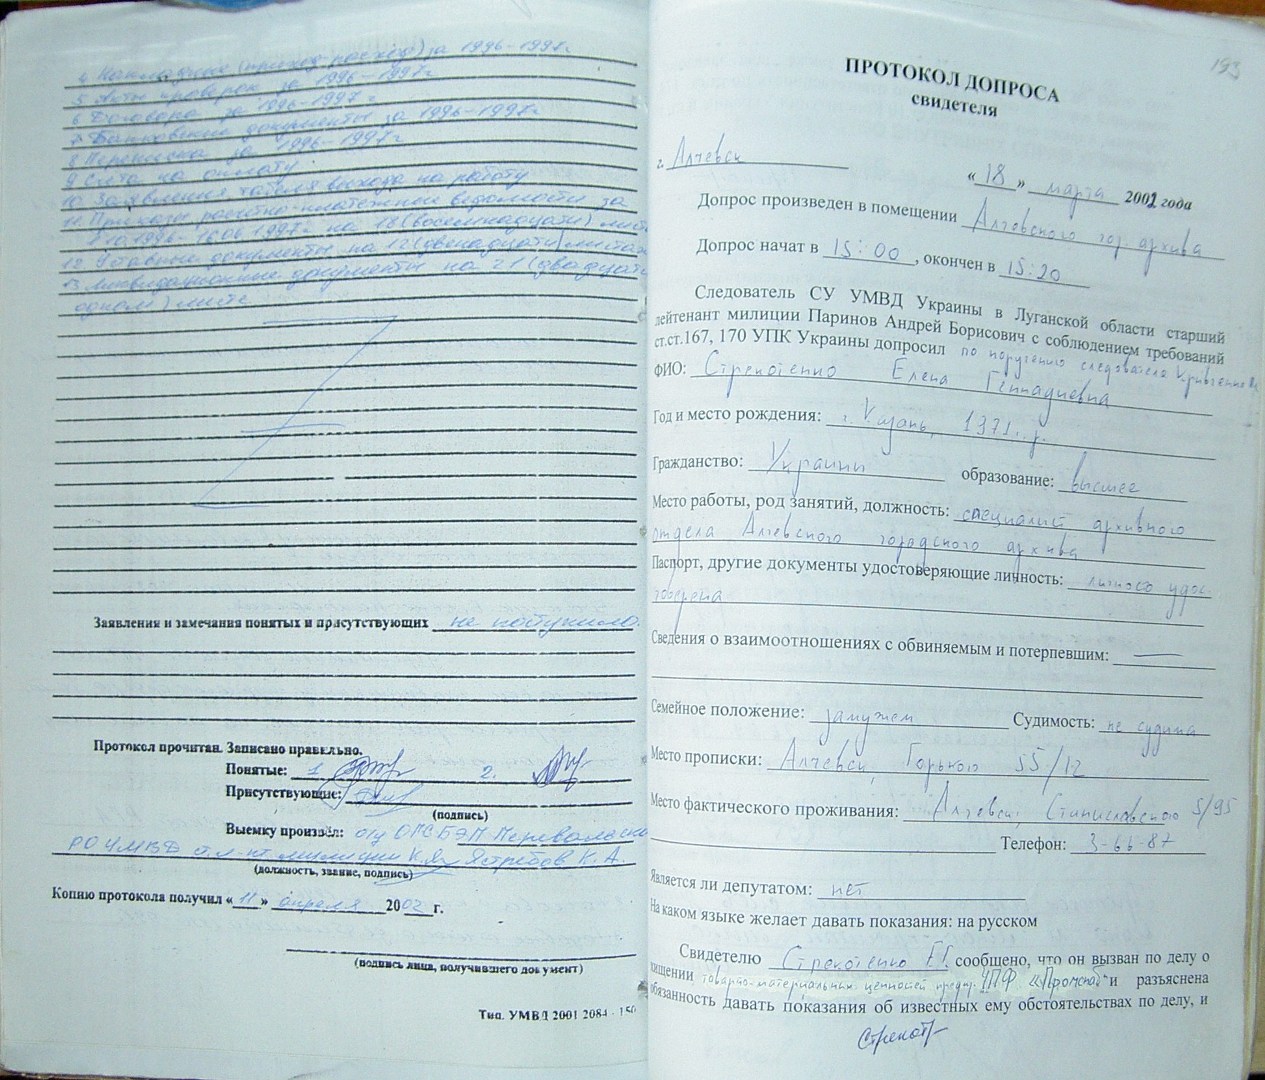 4 Накладные (приход-расход) за 1996-1997г
5 Акты проверок за 1996-1997г
6 Договора за 1996-1997г
7 Банковские документы за 1996-1997г
8 Переписка за 1996-1997г
9 Счета на оплату
10 Заявления, табеля выхода на работу
11 Приказы, расчетно-платежные ведомости за
1996- 16.06.1997г на 18 (восемнадцати) листах
12 Уставные документы на 12 (двенадцати) листах
13 Ликвидационные документы на 21 (двадцати
одном) листе
Заявления и замечания понятых и присутствующих не поступило.
Протокол прочитан. Записано правильно.
Понятые: 1 2.
Присутствующие:
(подпись)
Выемку произвел: о/у ОГСБЭП Перевальско
РО УМВД ст. л-нт милиции Ястребов К. А.
(должность, звание, подпись)
Копию протокола получил « 11 » апреля 2002 г.
(подпись лица, получившего документ)
Тип. УМВД 2001 2084 -
193
ПРОТОКОЛ ДОПРОСА
свидетеля
г. Алчевск
« 18 » марта 2002 года
Допрос произведен в помещении Алчевского гор. архива
Допрос начат в 15:00, окончен в 15:20
Следователь СУ УМВД Украины в Луганской области старший
лейтенант милиции Паринов Андрей Борисович с соблюдением требований
ст.ст.167, 170 УПК Украины допросил по поручению следователя
ФИО: Стрекотенко Елена Геннадиевна
Год и место рождения: г. Казань, 1971 г.р.
Гражданство: Украины образование: высшее
Место работы, род занятий, должность: специалист архивного
отдела Алчевского городского архива
Паспорт, другие документы удостоверяющие личность: личность удос-
товерена
Сведения о взаимоотношениях с обвиняемым и потерпевшим: —
Семейное положение: замужем Судимость: не судима
Место прописки: Алчевск, Горького 55/12
Место фактического проживания: Алчевск, Станиславского 5/95
Телефон: 3-66-87
Является ли депутатом: нет
На каком языке желает давать показания: на русском
Свидетелю Стрекотенко Е.Г. сообщено, что он вызван по делу о
хищении товарно-материальных ценностей предпр. ЧПФ «Промснаб» и разъяснена
обязанность давать показания об известных ему обстоятельствах по делу, и